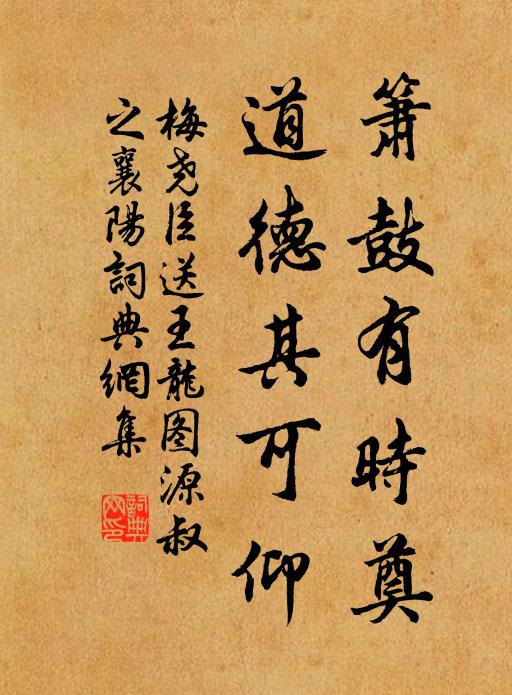 箫鼓有時奠
道德其可仰
梅尧臣送王龍图源叔
之襄陽詞典網集
詞典網印